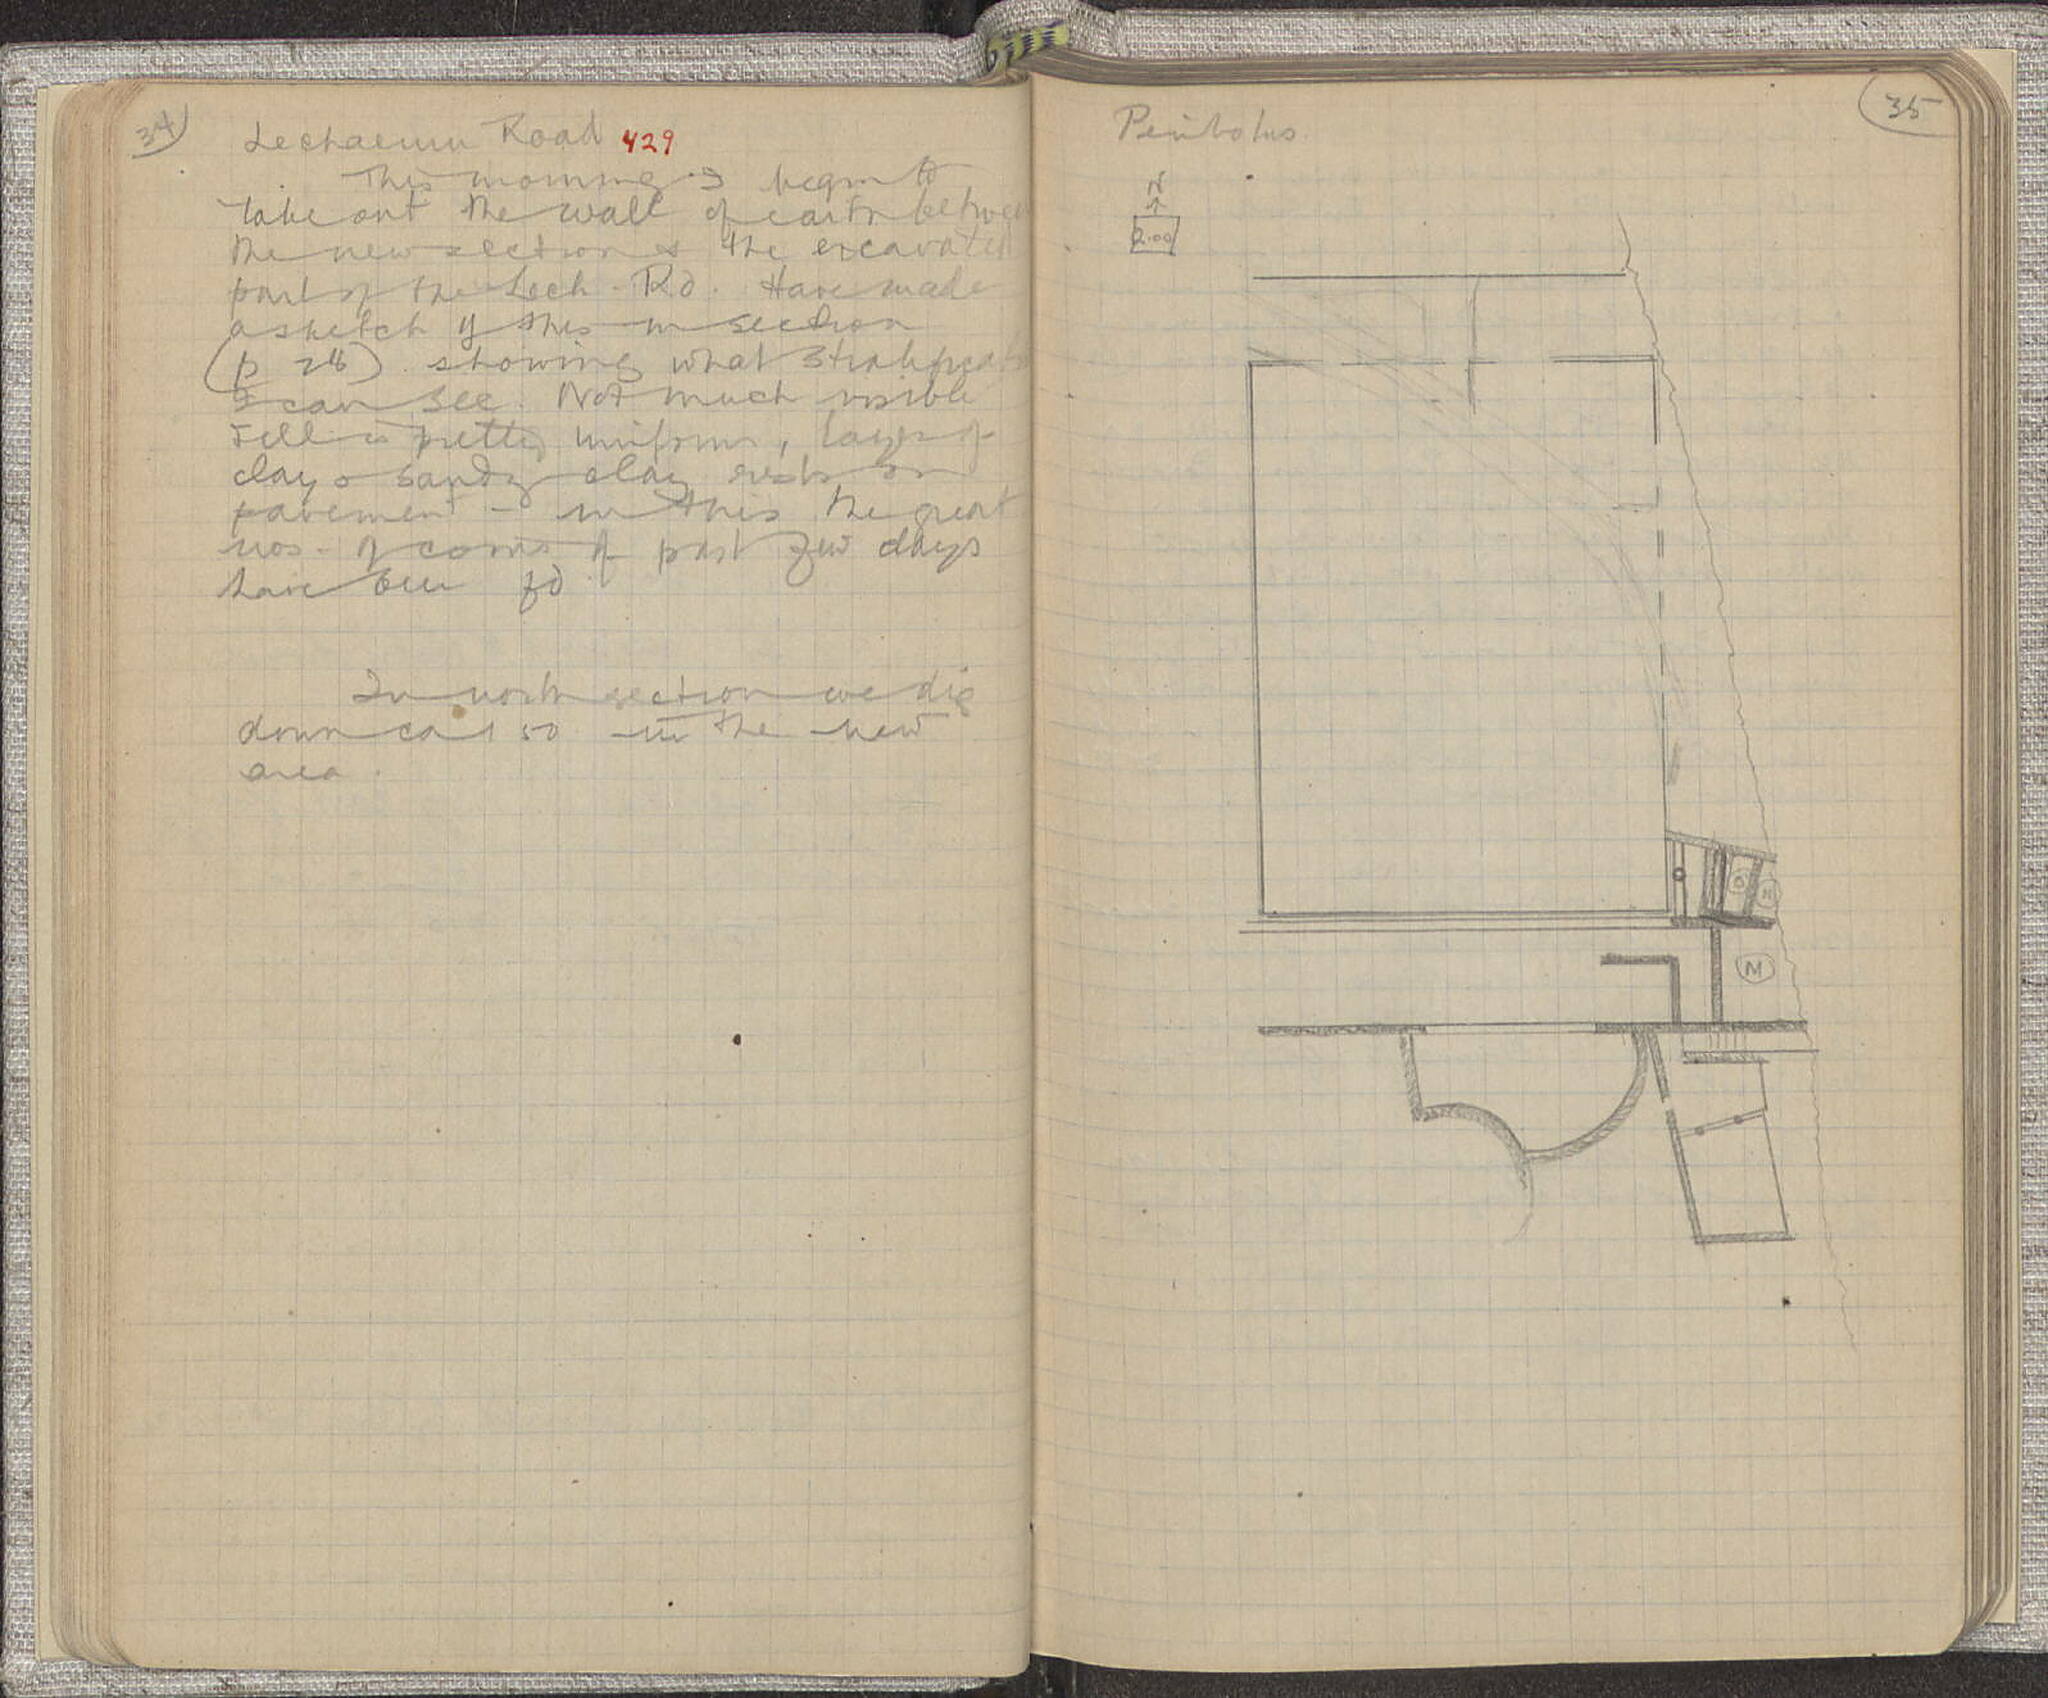 34
Lechaeum Road 429
This morning I begin to
take out the wall of earth between
the new section & the excavated
part of the Lech. Rd. Have made
a sketch of this in section
(p 28) showing what stratificat
I can see. Not much visible
Fill is pretty uniform, layer of
clay & sandy clay rests on
pavement - in this the great
nos. of coins of past few days
have been fd.
In north section we dig
down ca 1 50 in the new
area.
35
Peribolus.
N
2.00
N
M